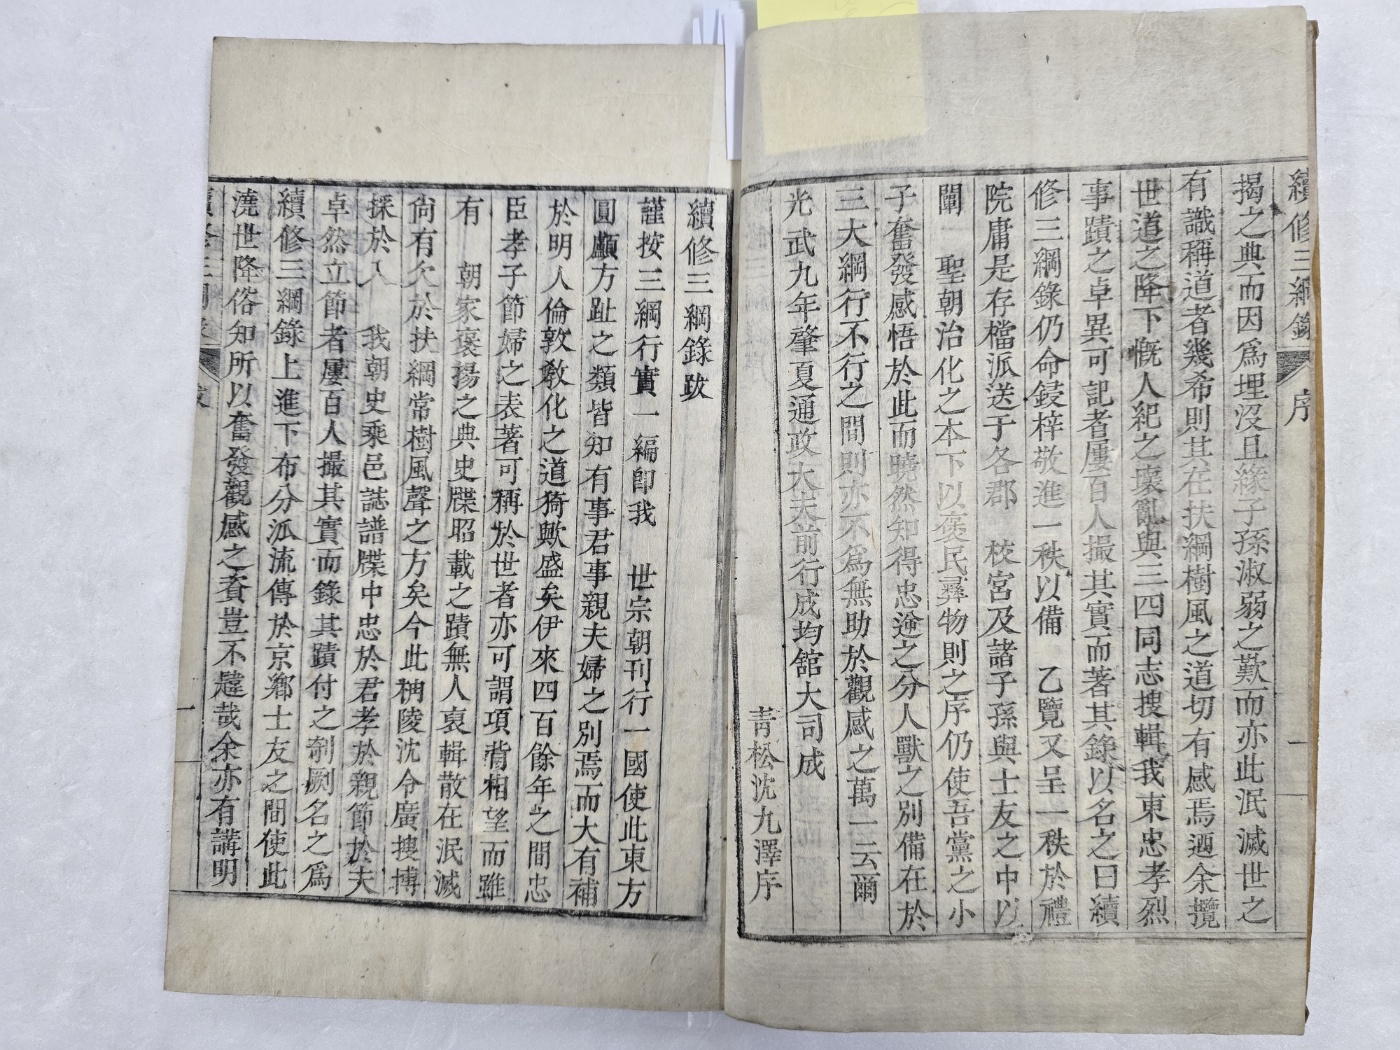 續修三綱錄 序 一
揭之典而因爲埋沒且緣子孫淑弱之歎而亦此泯滅世之
有識稱道者幾希則其在扶綱樹風之道切有感焉迺余攬
世道之降下慨人紀之壞亂與三四同志搜輯我東忠孝烈
事蹟之卓異可記者屢百人撮其實而著其錄以名之曰續
修三綱錄仍命鋟梓敬進一秩以備 乙覽又呈一秩於禮
院庸是存檔派送于各郡 校宮及諸子孫與士友之中以
闡 聖朝治化之本下以葆民彛物則之序仍使吾黨之小
子奮發感悟於此而曉然知得忠逆之分人獸之別備在於
三大綱行不行之間則亦不爲無助於觀感之萬一云爾
光武九年肇夏通政大夫前行成均舘大司成
靑松沈九澤序
續修三綱錄跋
謹按三綱行實一編卽我 世宗朝刊行一國使此東方
圓顱方趾之類皆知有事君事親夫婦之別焉而大有補
於明人倫敦敎化之道猗歟盛矣伊來四百餘年之間忠
臣孝子節婦之表著可稱於世者亦可謂項背相望而雖
有 朝家褒揚之典史牒昭載之蹟無人裒輯散在泯滅
尙有欠於扶綱常樹風聲之方矣今此秱陵沈令廣搜博
採於入 我朝史乘邑誌譜牒中忠於君孝於親節於夫
卓然立節者屢百人撮其實而錄其蹟付之剞劂名之爲
續修三綱錄上進下布分派流傳於京鄕士友之間使此
澆世降俗知所以奮發觀感之資豈不韙哉余亦有講明
續修三綱錄 跋 一